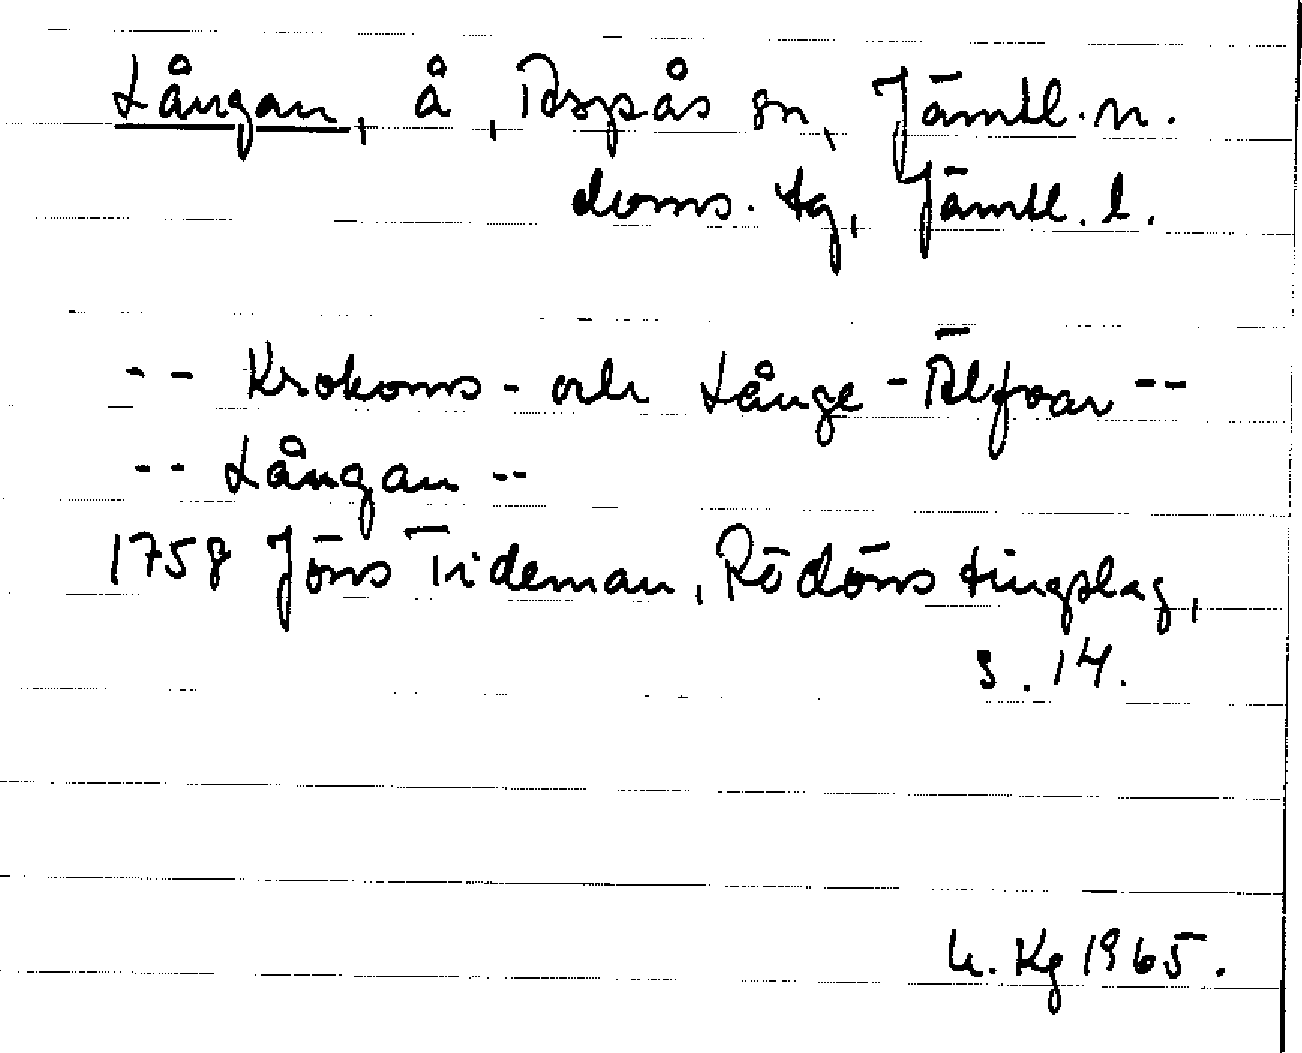 Långan, å, Aspås sn, Jämtl. n.
doms. tg, Jämtl. l.
-- Krokoms- och Långe-Älfvar --
-- Långan --
1758 Jöns Tideman, Rödöns tingslag,
s. 14.
h. Kg 1965.